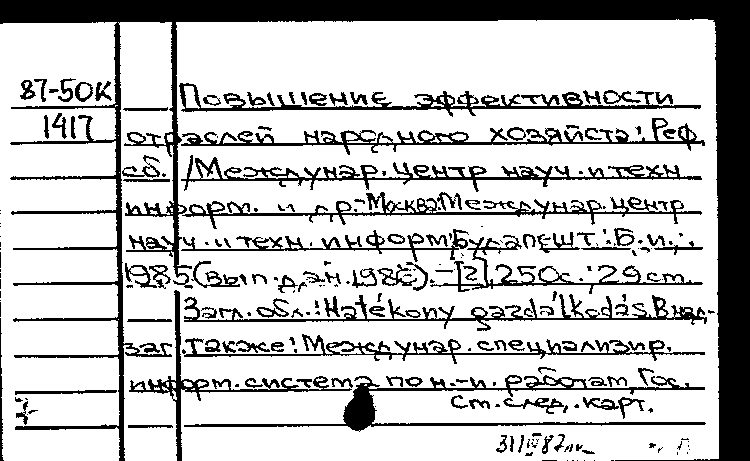 87-50К Повышение эффективности
1417 отраслей народного хозяйства: Реф.
сб. /Междунар. центр науч. и техн
информ. и др.- Москва: Междунар. центр
науч. и техн. информ; Будапешт: Б. и.,
1985 (вып. дан. 1986). - [2], 250с.; 29 cm.
Загл. обл.: Hatékony gazdálkodás. В над-
заг. также: Междунар. специализир.
информ. система по н.-и. работам, Гос.
ст. след. карт.
31 III 87